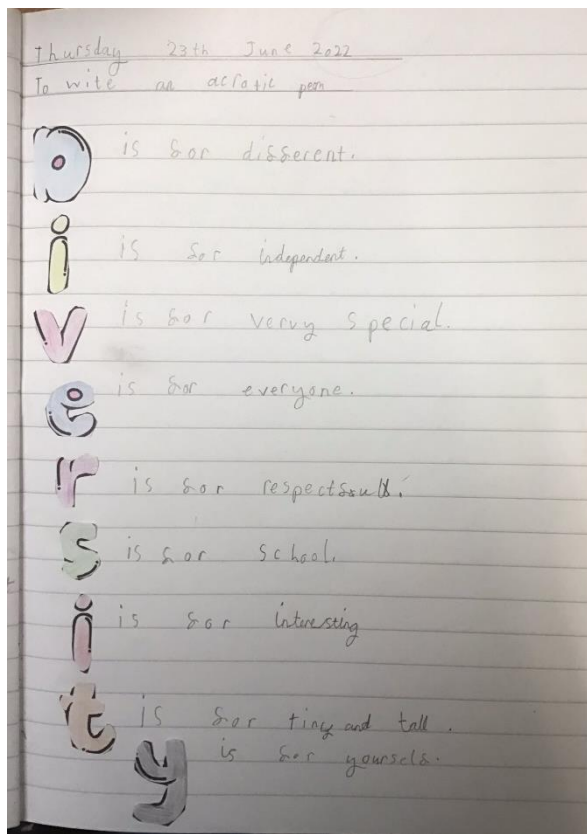 Thursday 23th June 2022
To wite an acrotic pem
D is for different.
i is for independent.
v is for vervy special.
e is for everyone.
r is for respectfull.
s is for school.
i is for interesting
t is for tiny and tall.
y is for yourself.